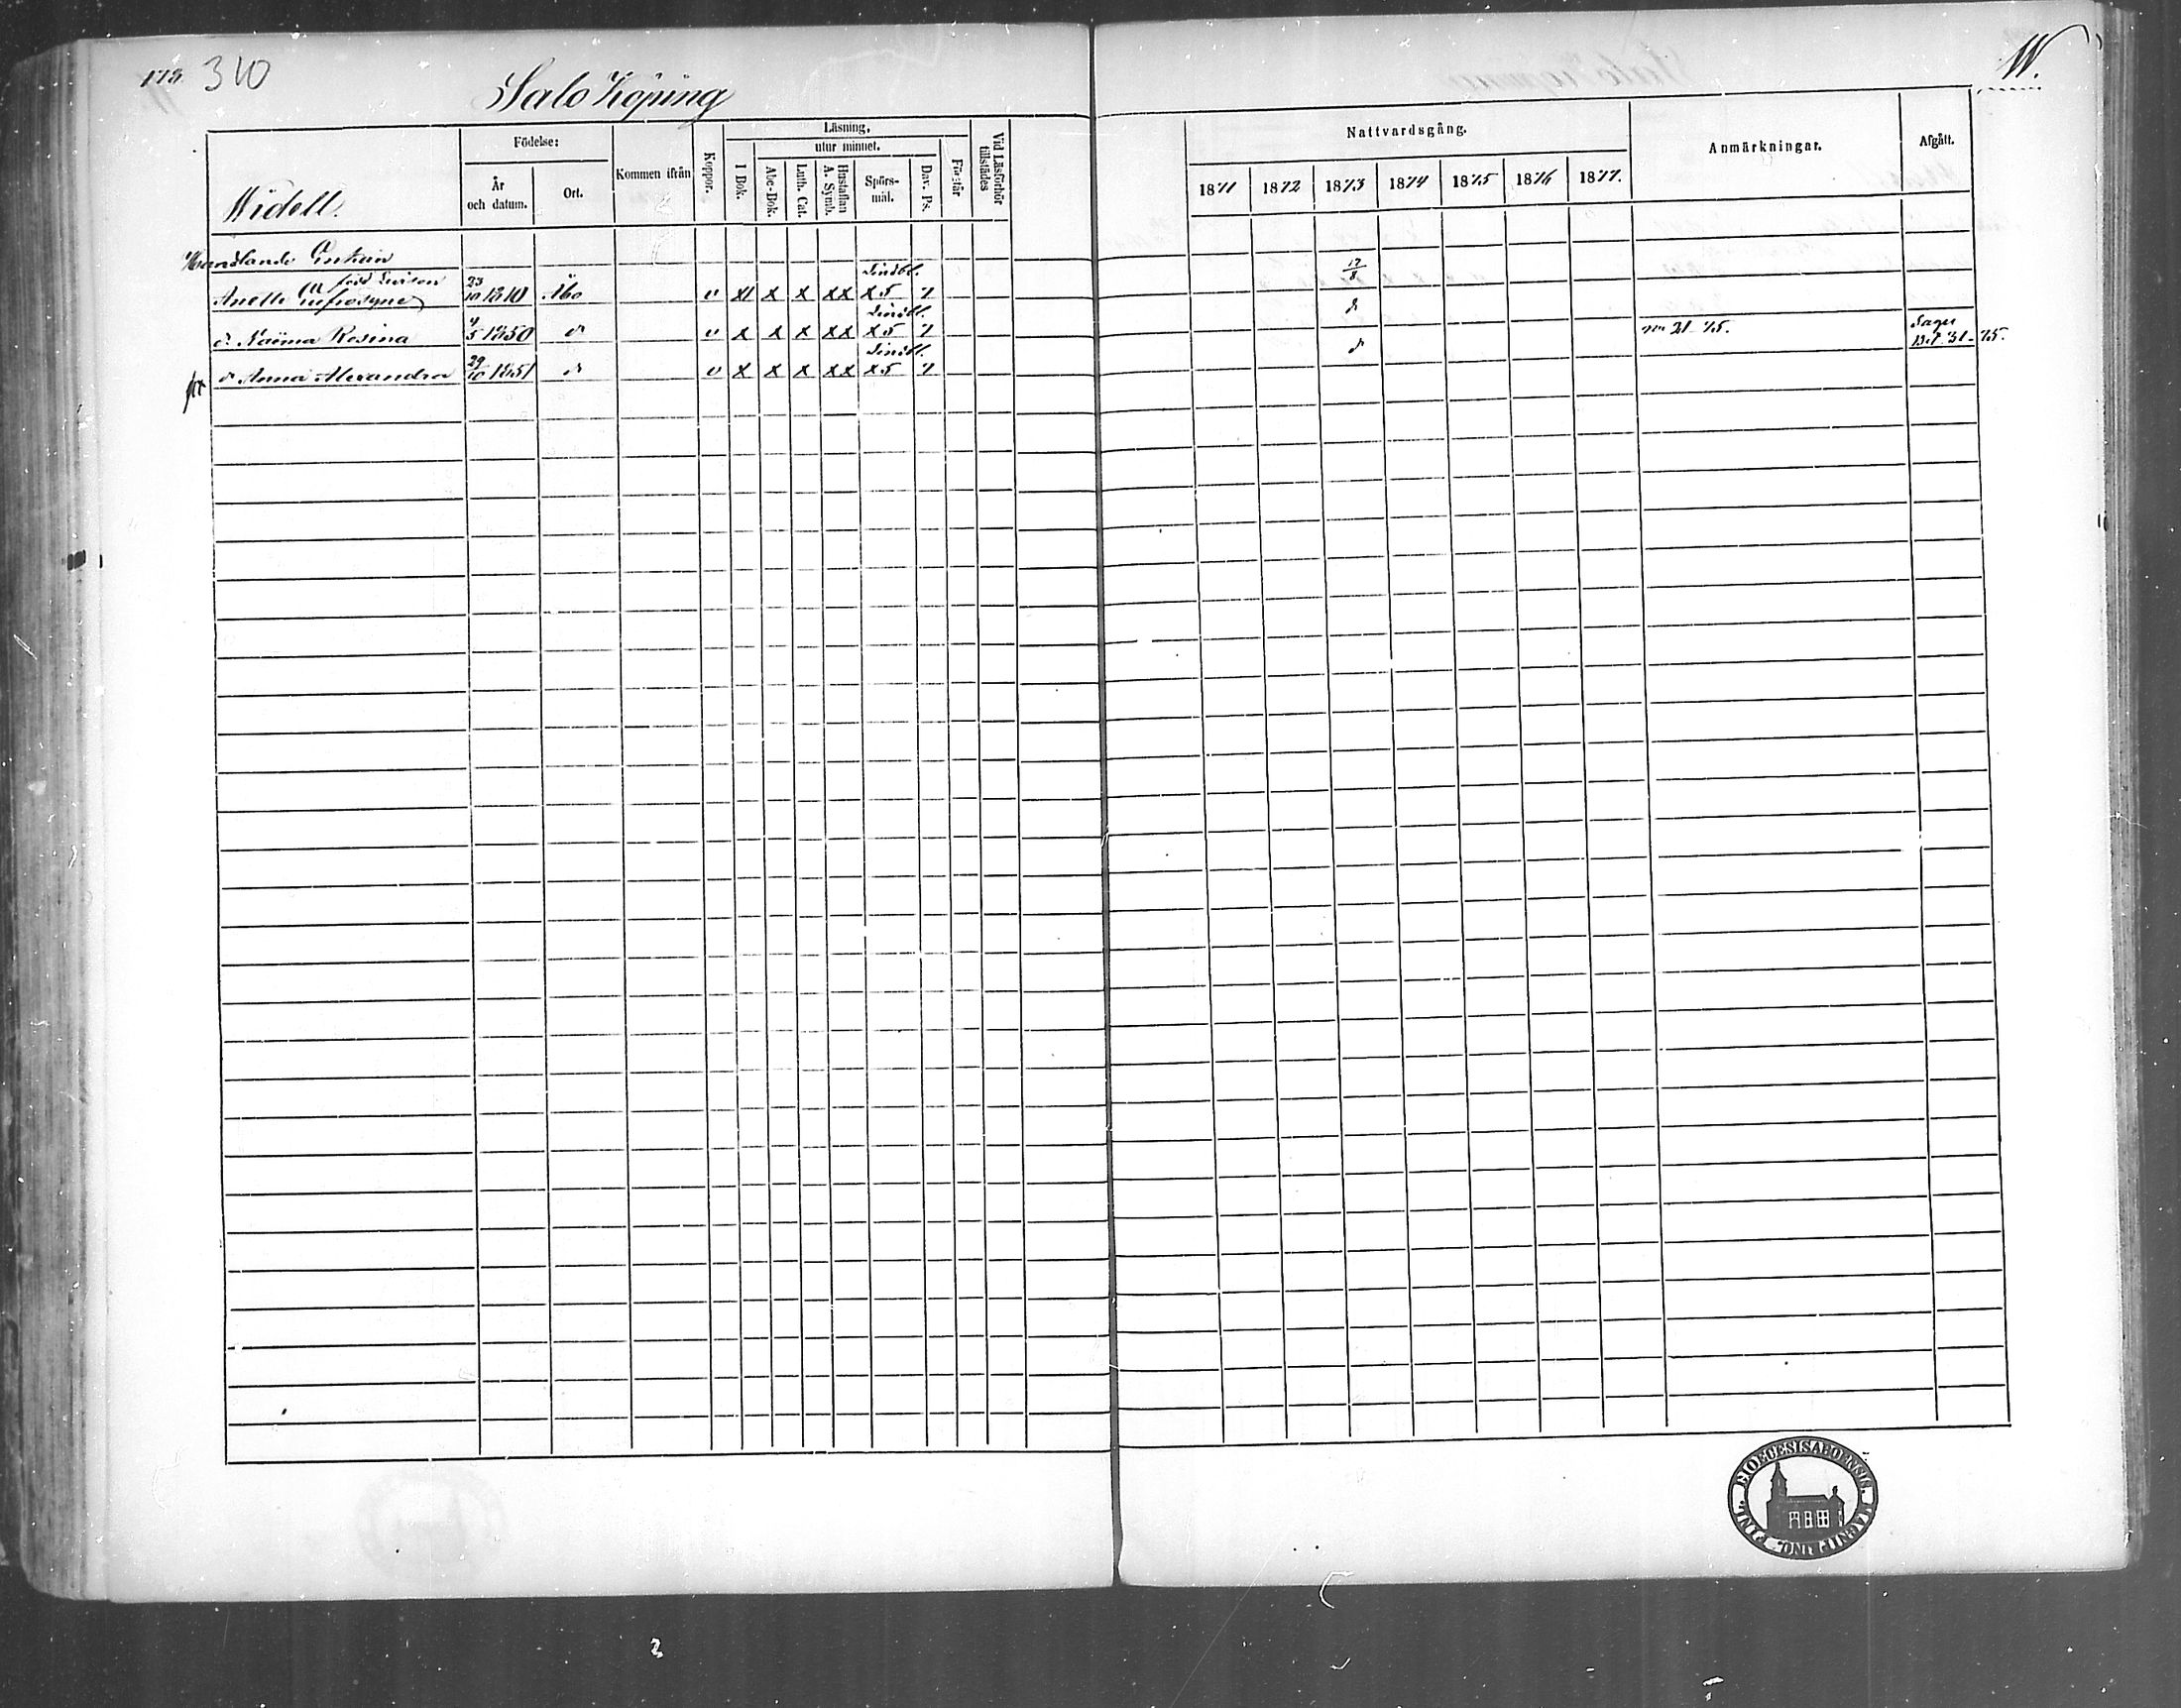 173. 310
Salo Köping
W.
Widell.
Födelse:
År och datum.
Ort.
Kommen ifrån
Koppor.
Läsning,
utur minnet.
I Bok.
Abc-Bok.
Luth. Cat.
Hustaflan A. Symb.
Spörs-mål.
Dav. Ps.
Förstår
Vid Läsförhör tillstädes
Nattvardsgång.
1871 1872 1873 1874 1875 1876 1877.
Anmärkningar.
Afgått.
Handlande Enkan
född
Anette Eufrosyne 23/10 1810 Åbo v XI x x xx Lindbl. x5 7 17/8
d. Naëma Rosina 4/5 1850 d v x x x xx Lindbl. x5 7 d
d Anna Alexandra 29/10 1851 d v x x x xx Lindbl. x5 7 d 21 75. 31-75.